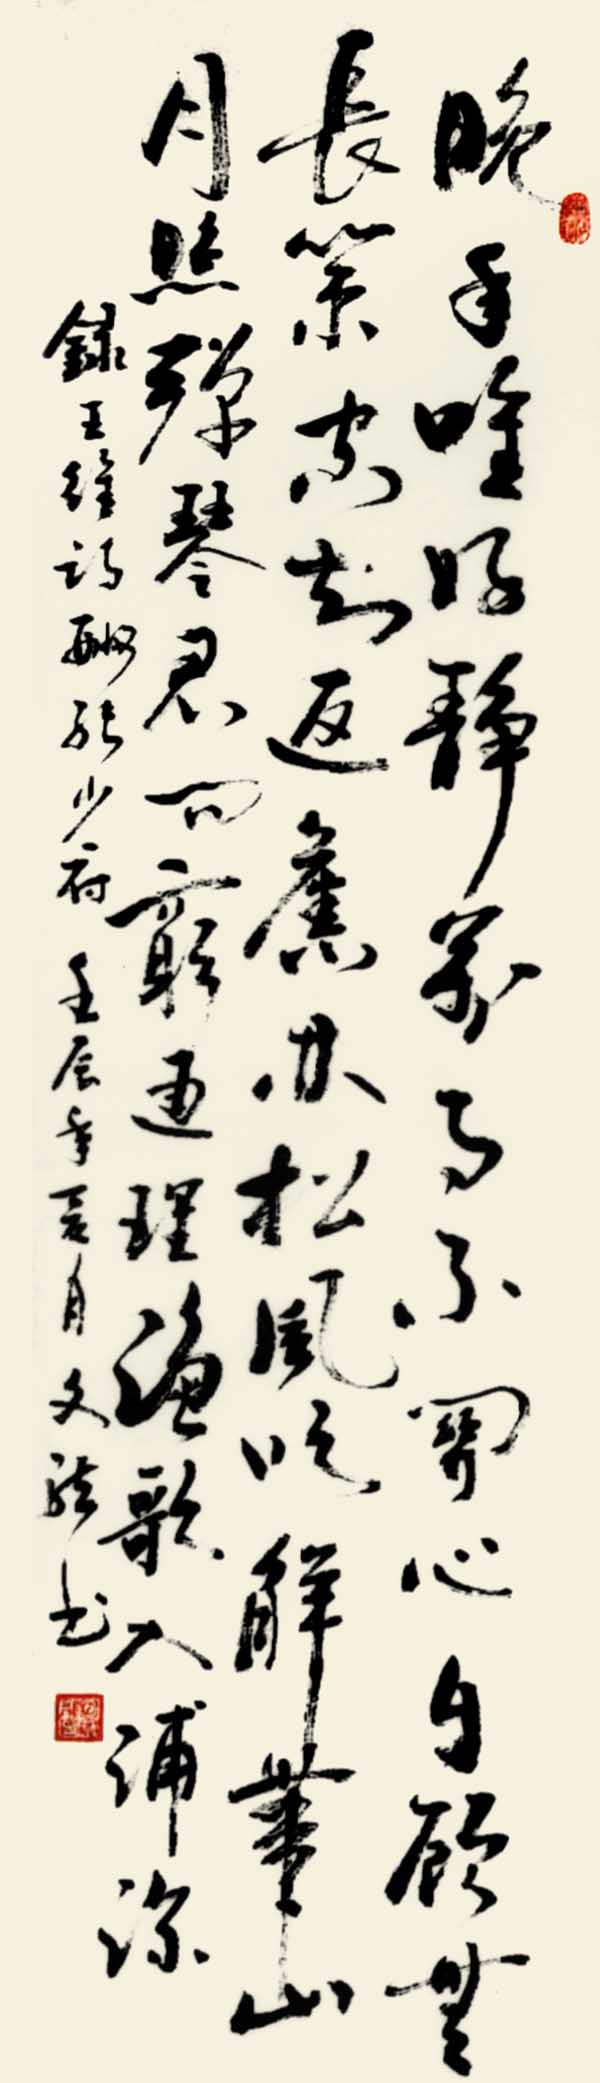 晚年唯好靜萬事不關心自顧無
長策空知返舊林松風吹解帶山
月照彈琴君問窮通理漁歌入浦深
錄王維詩酬張少府 壬辰年月文書